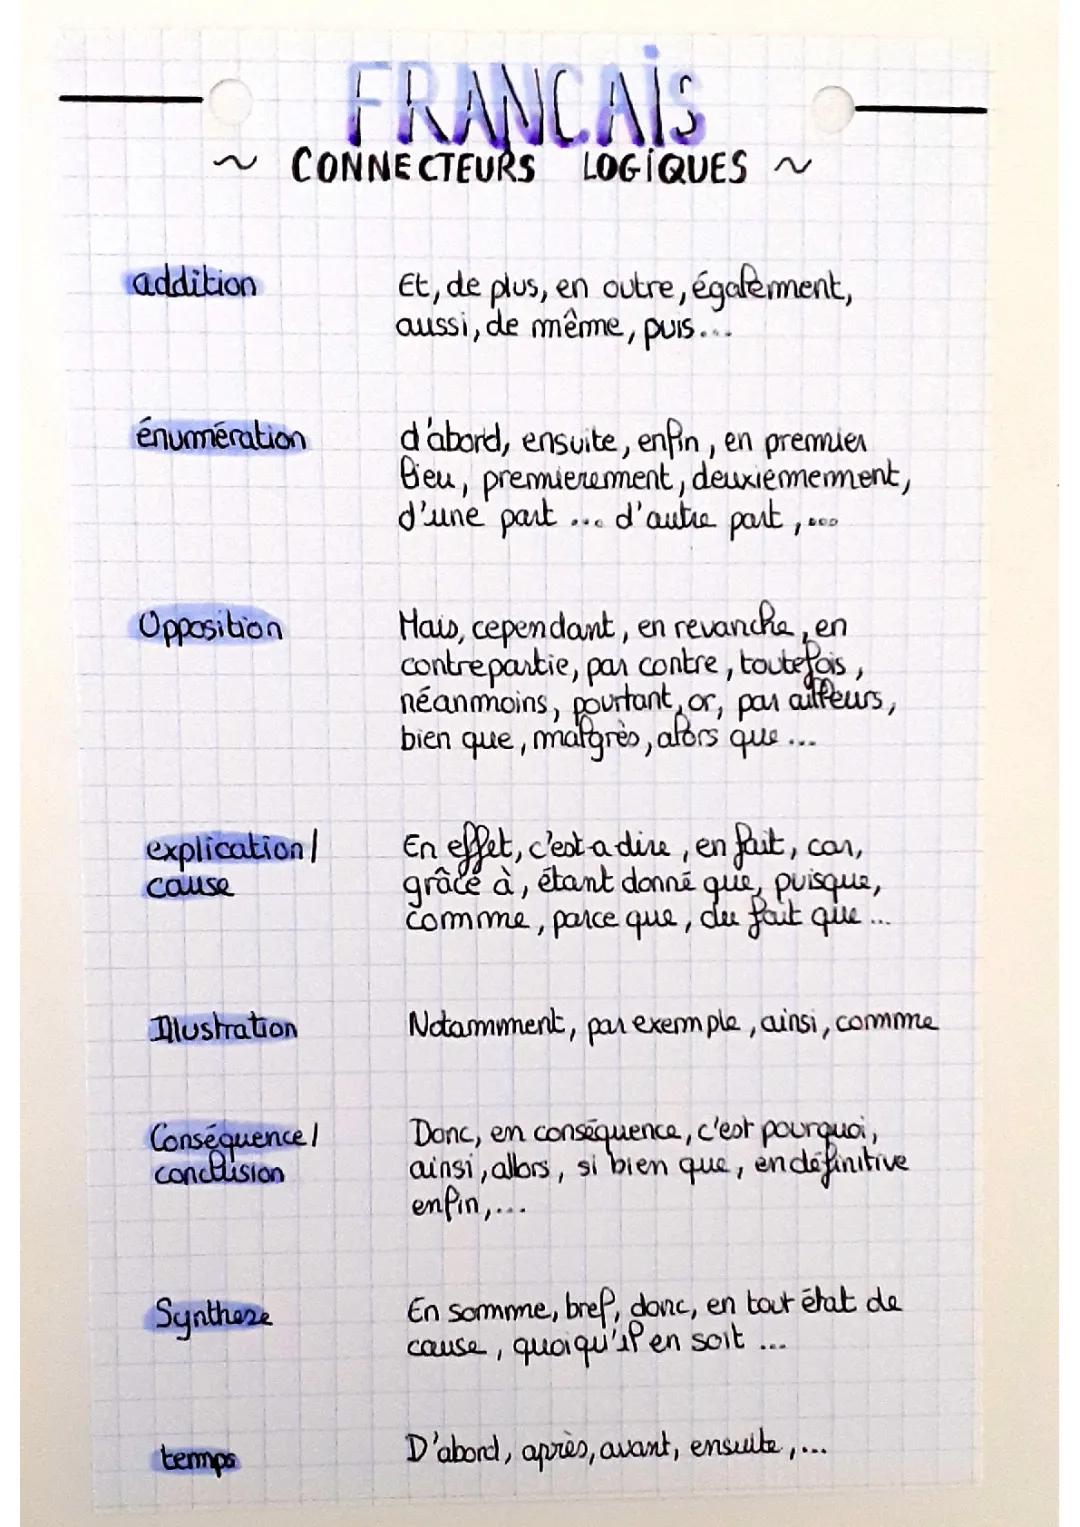 FRANCAIS
~ CONNECTEURS LOGIQUES ~
addition
Et, de plus, en outre, également,
aussi, de même, puis...
énumération
d'abord, ensuite, enfin, en premier
lieu, premierement, deuxiemement,
d'une part ... d'autre part, ...
Opposition
Mais, cependant, en revanche, en
contrepartie, par contre, toutefois,
néanmoins, pourtant, or, par ailleurs,
bien que, malgrès, alors que ...
explication /
cause
En effet, c'est-a-dire, en fait, car,
grâce à, étant donné que, puisque,
comme, parce que, du fait que ...
Illustration
Notamment, par exemple, ainsi, comme
Conséquence /
conclusion
Donc, en conséquence, c'est pourquoi,
ainsi, allors, si bien que, en définitive
enfin, ...
Synthese
En somme, bref, donc, en tout état de
cause, quoiqu'il en soit ...
temps
D'abord, après, avant, ensuite, ...